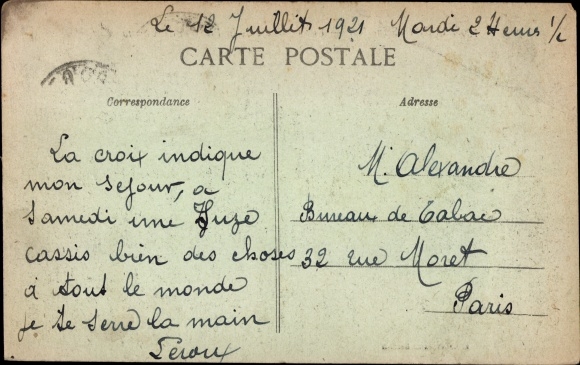 Le 12 Juillet 1921 Mardi 2 Heures 1/2
CARTE POSTALE
Correspondance
Adresse
La croix indique
mon sejour, a
Samedi une
cassis bien des choses
a tout le monde
je te serre la main
Leroux
M. Alexandre
Bureau de Tabac
32 rue Moret
Paris